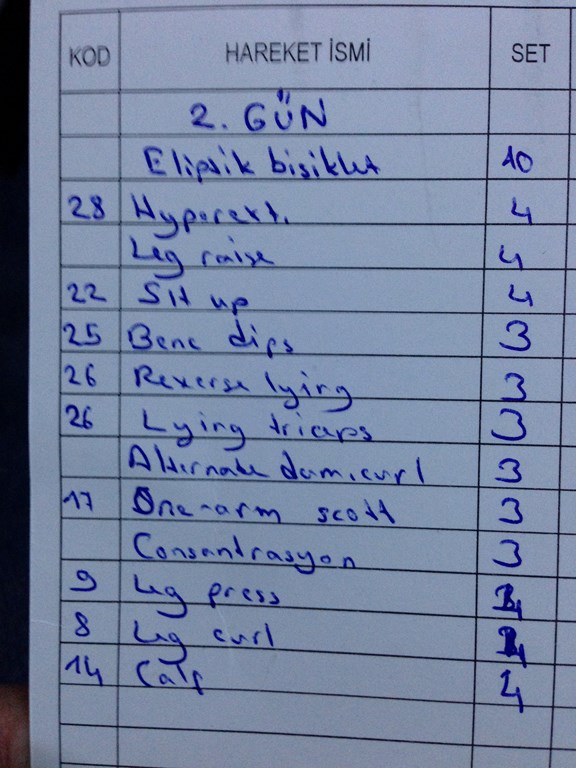 KOD HAREKET İSMİ SET
2. GÜN
Eliptik bisiklet 10
28 Hyperext. 4
Leg raise 4
22 Sit up 4
25 Benc dips 3
26 Rexerse lying 3
26 Lying triceps 3
Alternate dam.curl 3
17 One-arm scott 3
Consantrasyon 3
9 Leg press 4
8 Leg curl 4
14 Calf 4